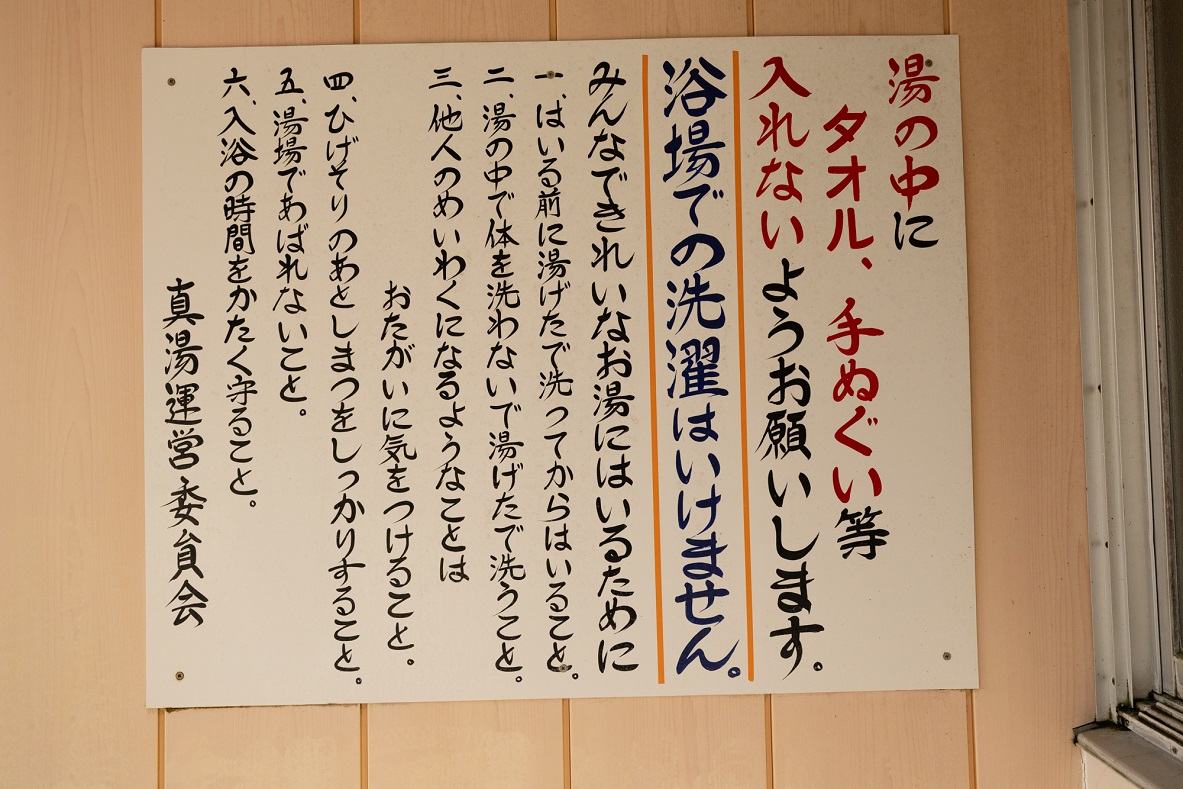 湯の中に
タオル、手ぬぐい等
入れないようお願いします。
浴場での洗濯はいけません。
みんなできれいなお湯にはいるために
一、はいる前に湯げたで洗ってからはいること。
二、湯の中で体を洗わないで湯げたで洗うこと。
三、他人のめいわくになるようなことは
おたがいに気をつけること。
四、ひげそりのあとしまつをしっかりすること。
五、湯場であばれないこと。
六、入浴の時間をかたく守ること。
真湯運営委員会